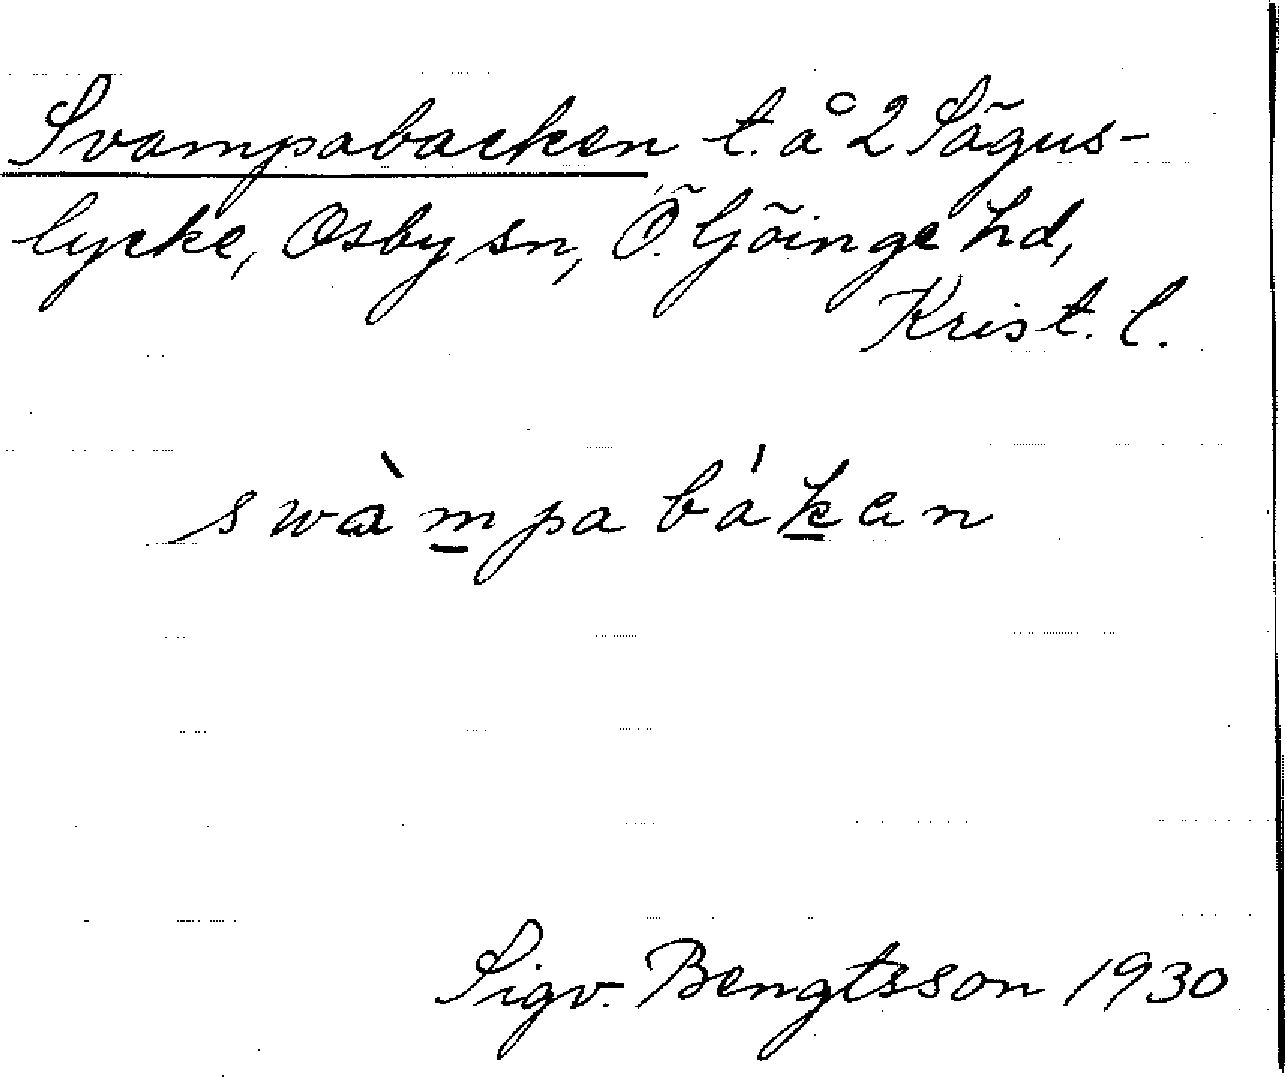 Svampabacken t. å 2 Sägus-
lycke, Osby sn, Ö. Göinge hd,
Krist. l.
swàmpa bákan
Sigv. Bengtsson 1930